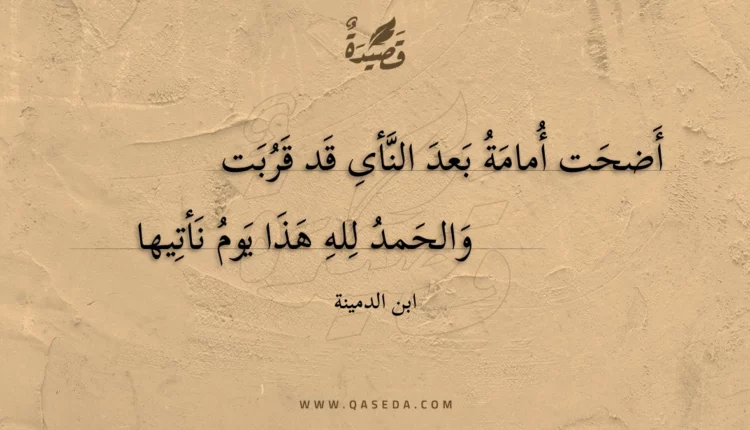 قَصِيدَةٌ
أَضحَت أُمامَةُ بَعدَ النَّأيِ قَد قَرُبَت
وَالحَمدُ لِلهِ هَذَا يَومُ نَأتِيها
ابن الدمينة
WWW.QASEDA.COM